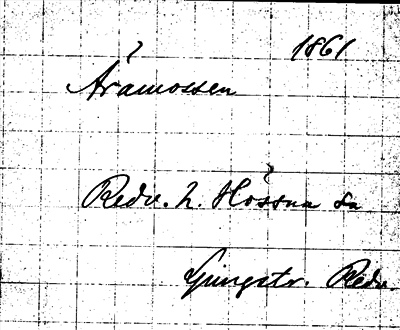 1861
Åråmossen
Redv. h. Hössna sn
Ljungstr. Redv.